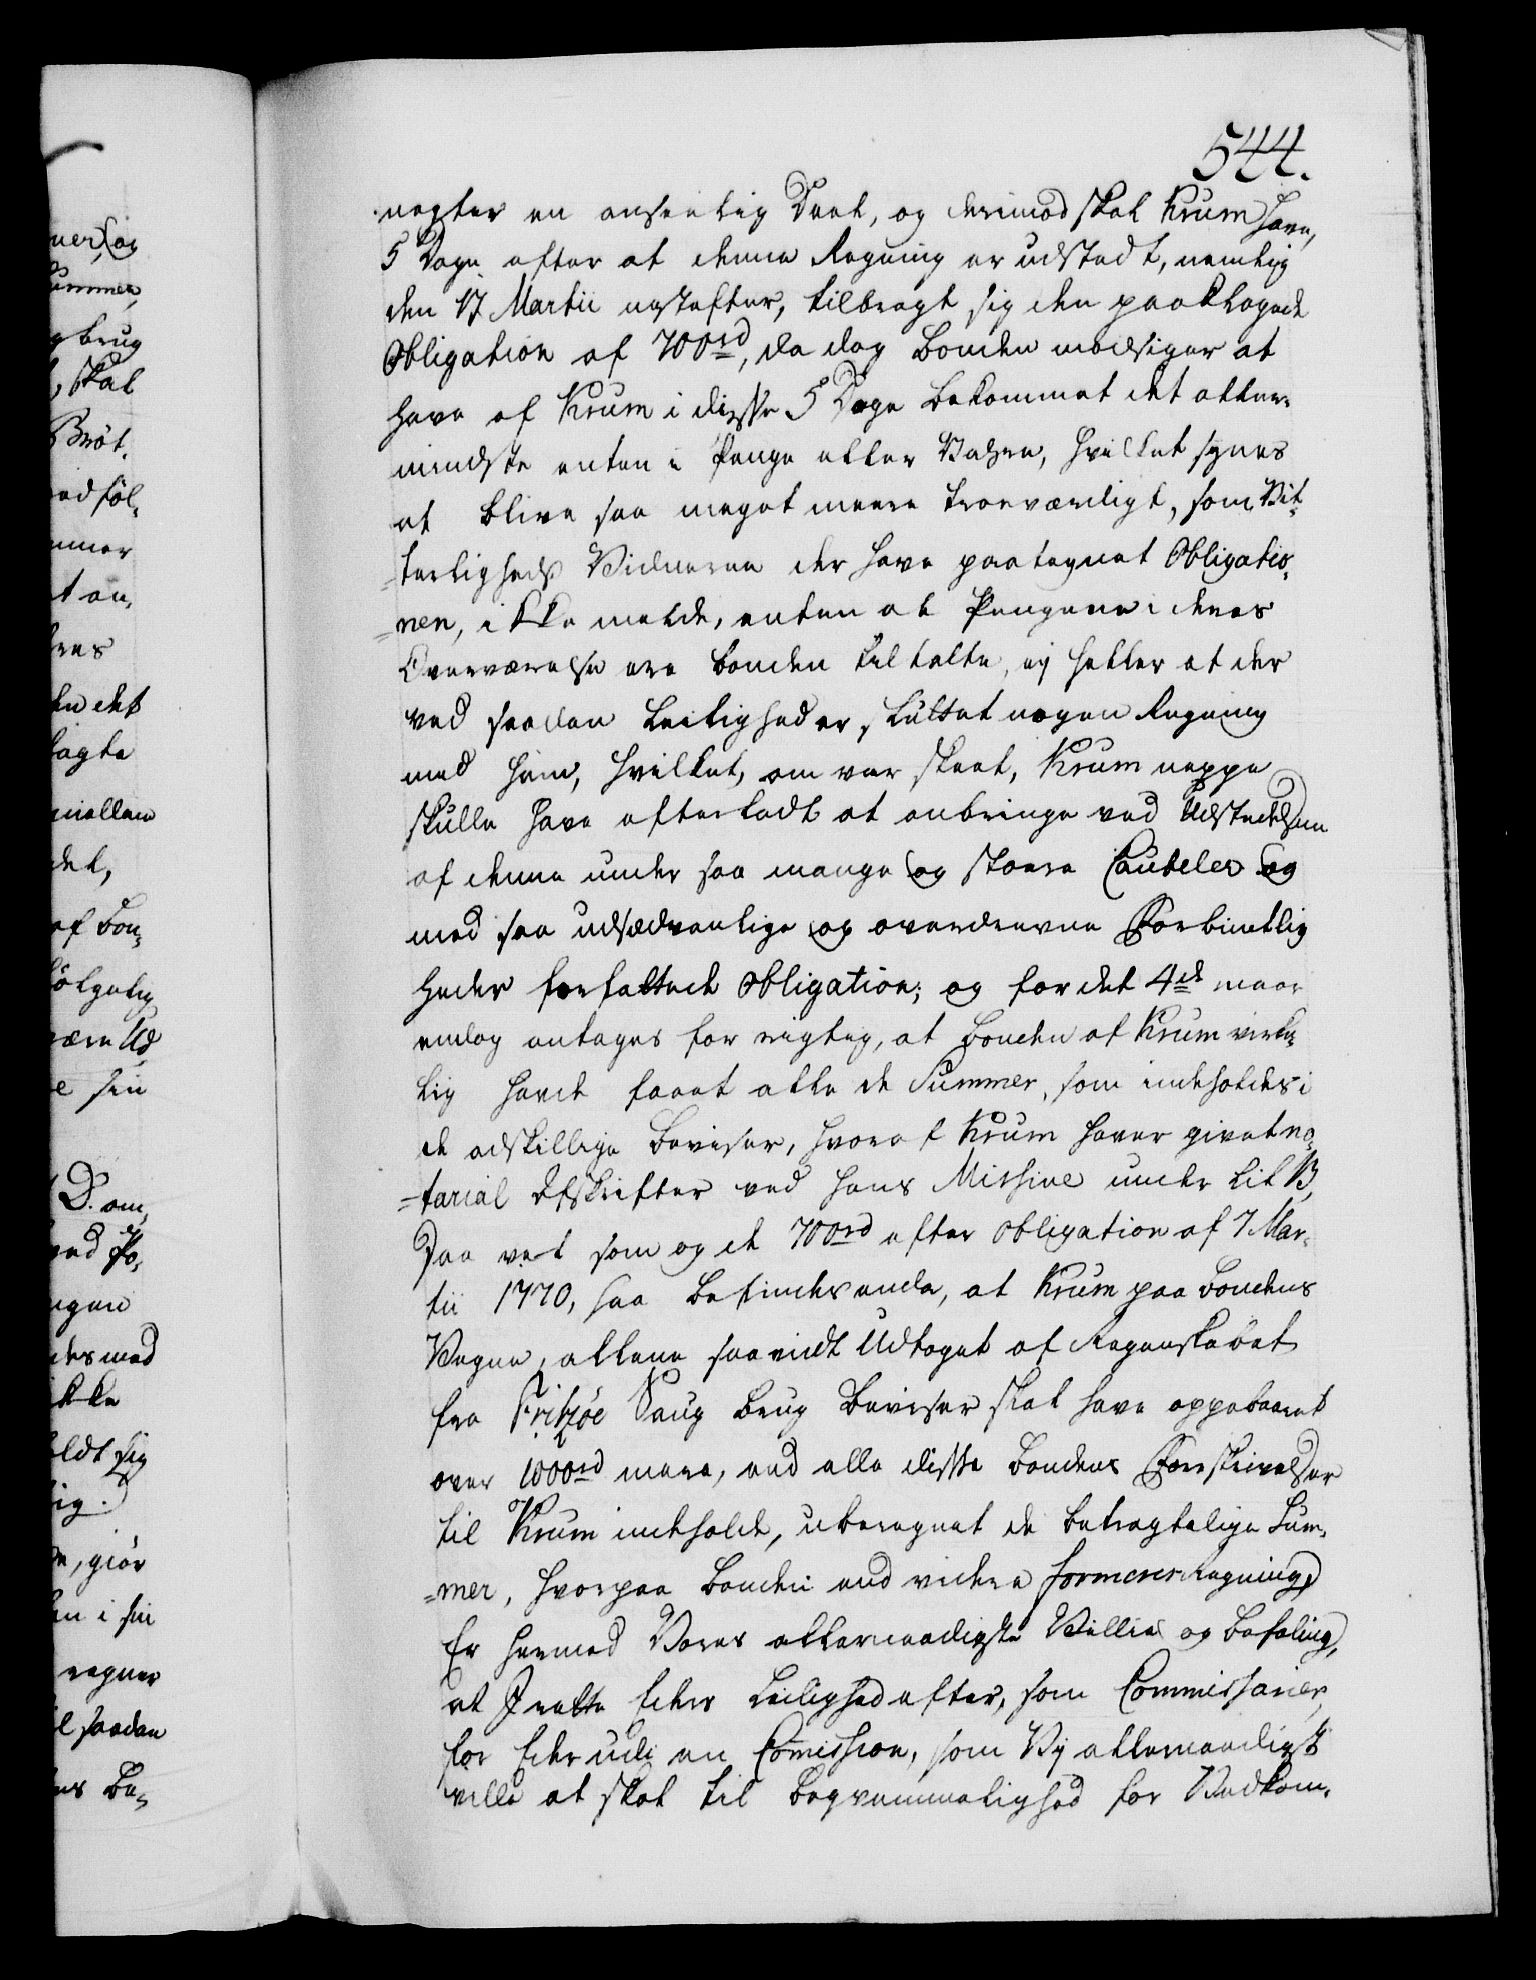 544.
negter en anseelig Deel, og derimod skal Krum have,
5 Dage efter at denne Regning er udstedt, nemlig
den 17 Martii nestefter, tilbragt sig den paaklagede
Obligation af 700rd, da dog Bonden modsiger at
have af Krum i disse 5 Dage bekommet det aller¬
mindste enten i Penge eller Vahre, hvilket synes
at blive saa meget meere troeværdigt, som Vit¬
terligheds Vidnerne der have paategnet Obligatio¬
=nen, ikke melde, enten at Pengene i deres
Overværelse ere bonden til talte, ej heller at der
ved saadan Leilighed er sluttet nogen Regning
med ham, hvilket, om var skeet, Krum neppe
skulle have efterladt at anbringe ved Udstedelsen
af denne under saa mange og stoere Cauteler og
med saa udsædvanlige og overdrevne Forbindtlig
heder forfattede Obligation; og for det 4de maae
endog antages for rigtig, at bonden af Krum virke¬
lig havde faaet alle de Summer, som indeholdes i
de adskillige Beviser, hvoraf Krum haver givet no¬
=tarial Afskrifter ved hans Missive under Lit B,
Saa vel som og de 700rd efter Obligation af 7 Mar¬
tii 1770, saa befindes enda, at Krum paa bondens
Vegne, allene saavidt Udtoget af Regenskabet
fra Fritzøe Saug brug beviser skal have oppebaaret
over 1000rd meere, end alle disse bondens Forskrivelser
til Krum indholde, uberegnet de betragtelige Sum¬
=mer, hvorpaa bonden end videre formerer Regning,
Er hermed Vores allernaadigste Villie og befaling,
at I rette Eders Leilighed efter, som Commissarier,
for Eder udi en Comission, som Vij allernaadigst
ville at skal til beqvemmelighed for Vedkom¬